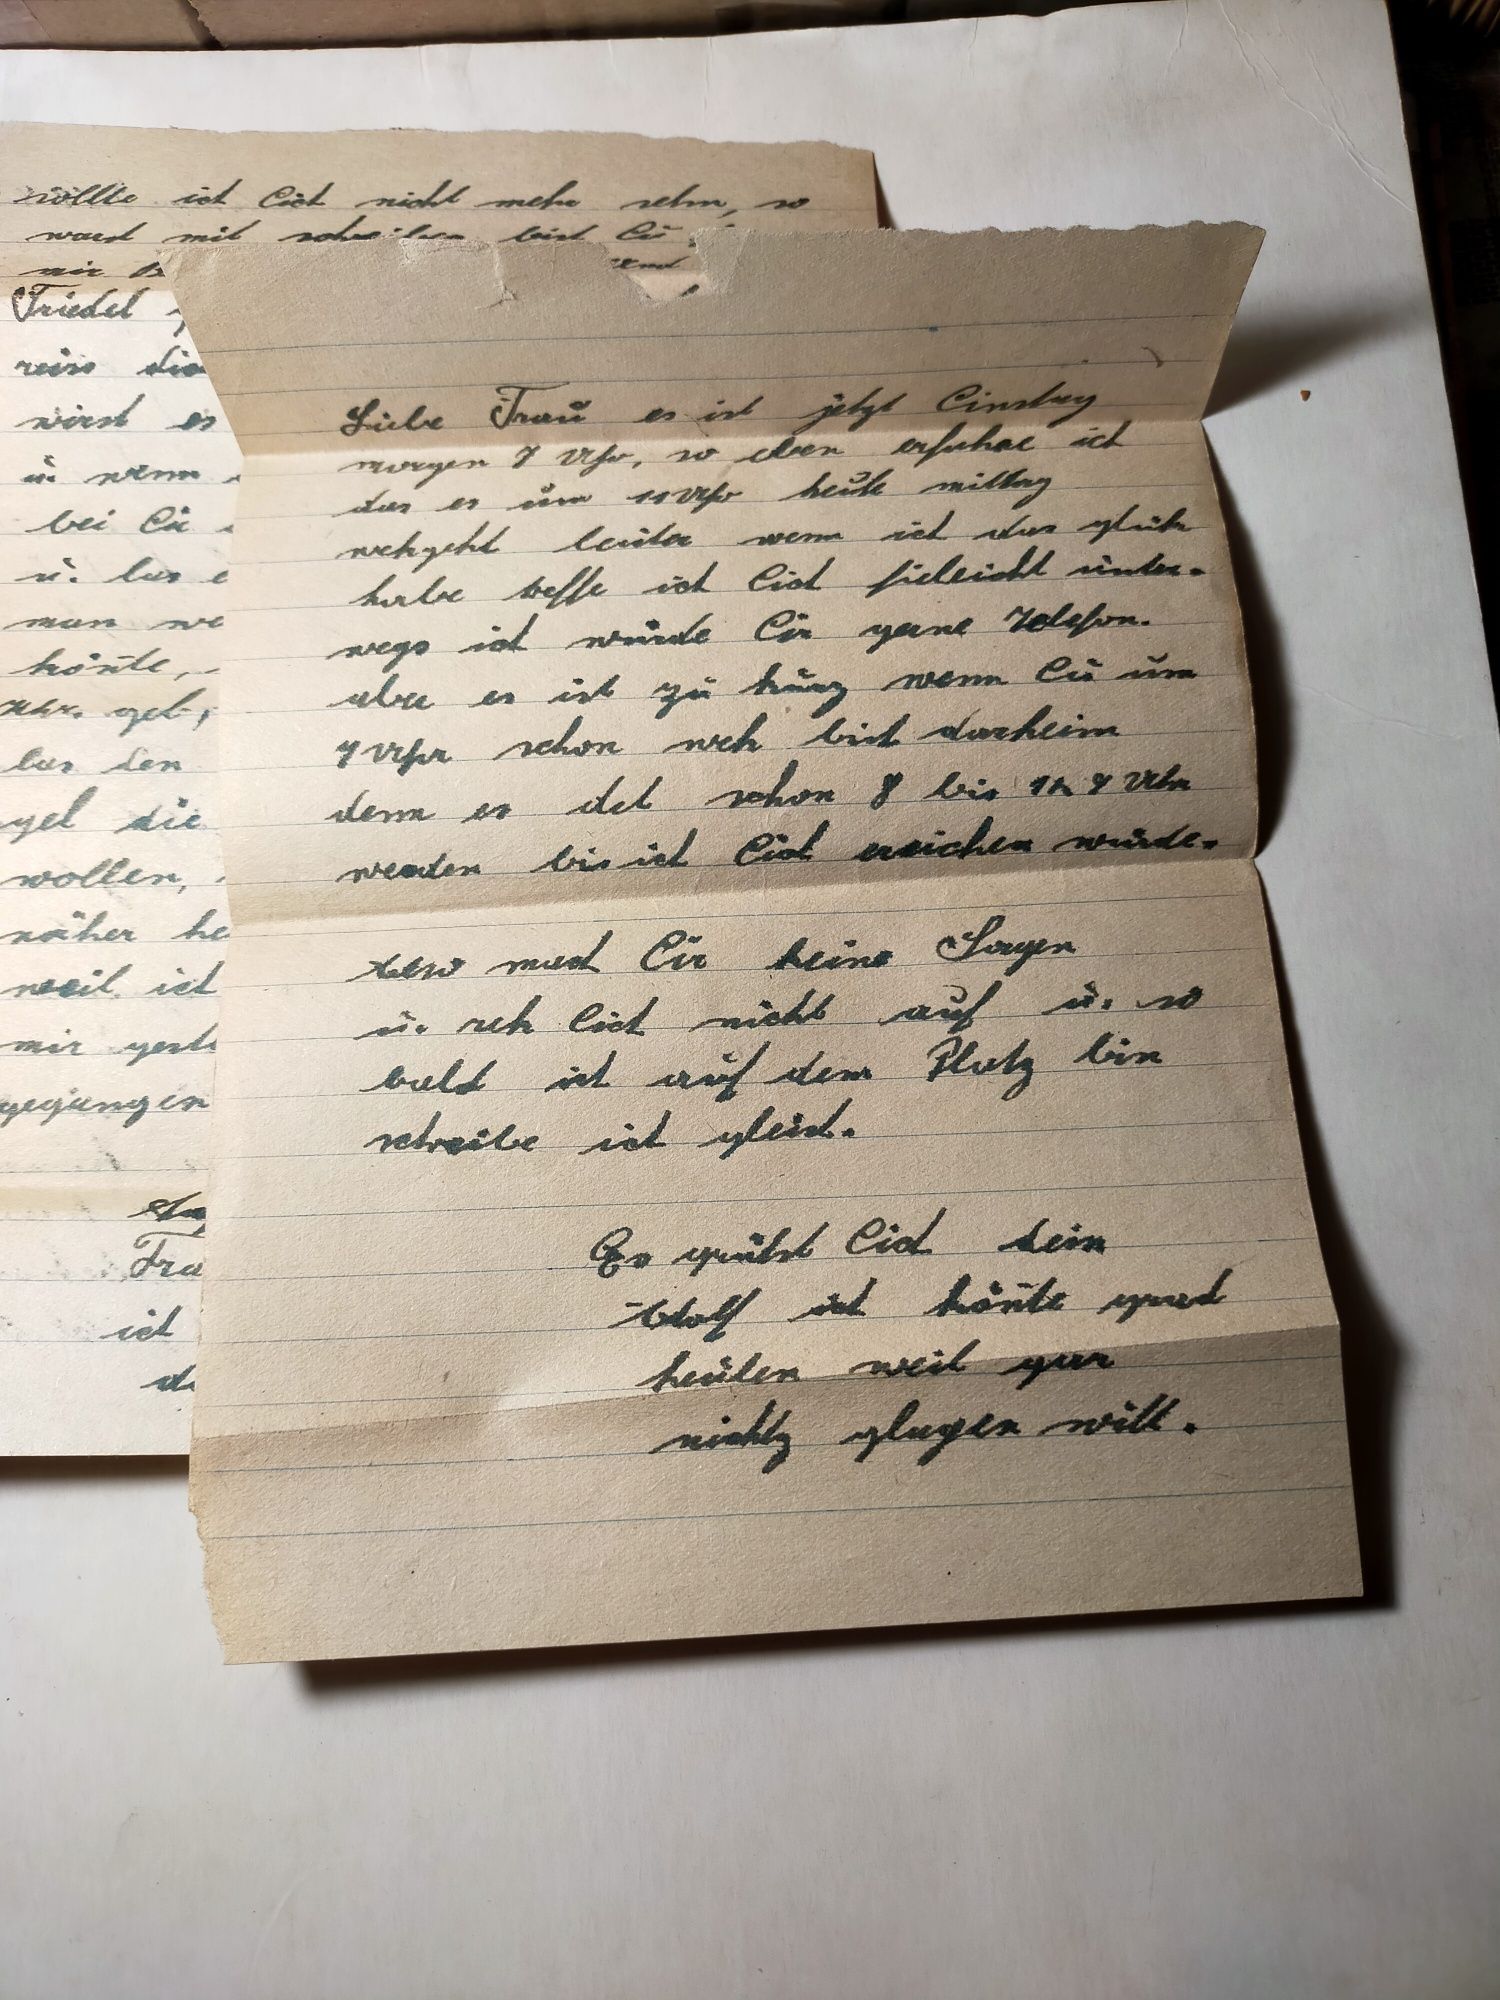 sollte ich Dich nicht mehr sehn, so
mach mit schreiben bist Du
mir
Friedel
reiss die
wirst es
u. wenn
bei Dir
u. las
man we
könnte,
Uhr. geb,
las den
gel die
wollen,
näher he
weil ich
mir gest
gegangen
Fra
ich
da
Liebe Frau es ist jetzt Dinstag
morgen 7 Uhr, so eben erfuhre ich
das es um 11 Uhr heute mittag
wehgeht leuter wenn ich das glük
habe treffe ich Dich fieleicht unter-
wegs ich würde Dir gerne Telefon.
aber es ist zu kurz wenn Du um
7 Uhr schon weh bist darheim
denn es det schon 8 bis 1/2 9 Uhr
werden bis ich Dich ereichen würde.
Also mach Dir keine Sorgen
u. reh Dich nicht auf u. so
bald ich auf dem Platz bin
schreibe ich gleich.
Es grüßt Dich dein
Adolf ich könnte grad
heulen weil gar
nichtz glugen will.